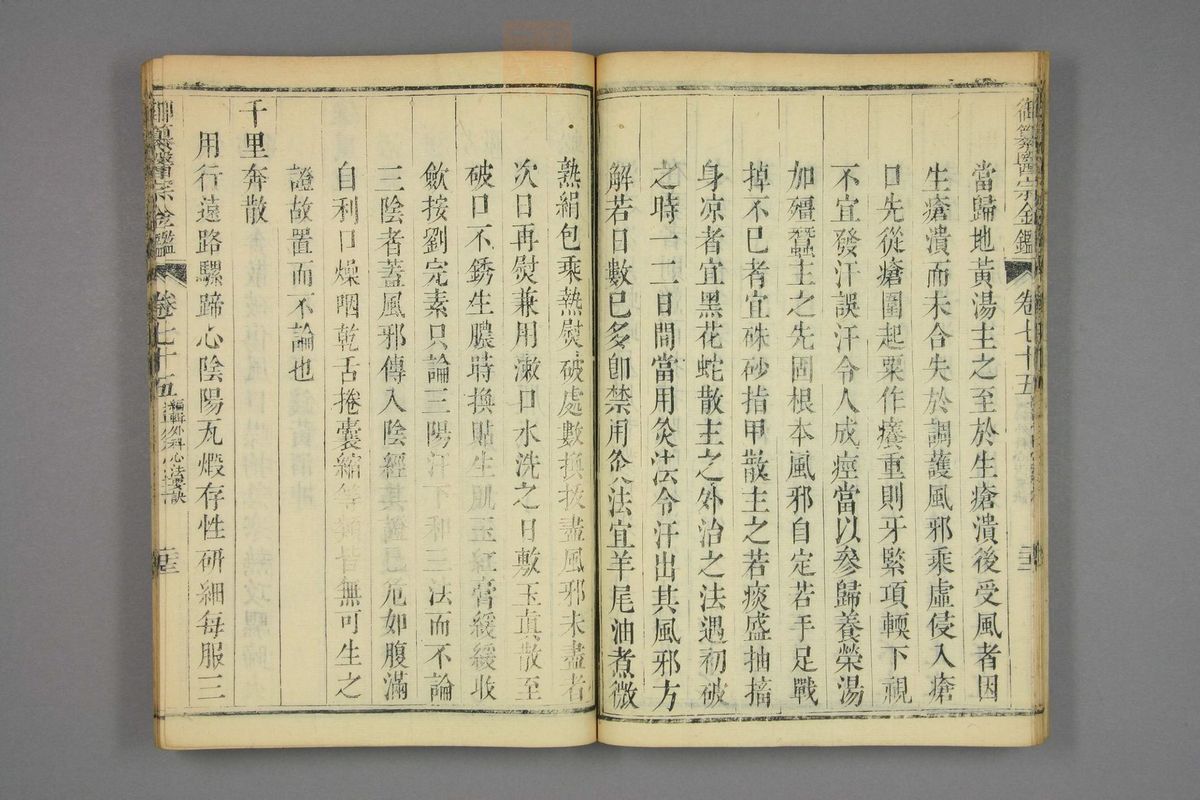 御纂醫宗金鑑 卷七十五 二十三
當歸地黃湯主之至於生瘡潰後受風者因
生瘡潰而未合失於調護風邪乘虛侵入瘡
口先從瘡圍起粟作癢重則牙緊項輭下視
不宜發汗誤汗令人成痙當以參歸養榮湯
加殭蠶主之先固根本風邪自定若手足戰
掉不已者宜硃砂指甲散主之若痰盛抽搐
身凉者宜黑花蛇散主之外治之法遇初破
之時一二日間當用灸法令汗出其風邪方
解若日數已多卽禁用灸法宜羊尾油煮微
熟絹包乘熱熨破處數換拔盡風邪未盡者
次日再熨兼用漱口水洗之日敷玉真散至
破口不銹生膿時換貼生肌玉紅膏緩緩收
斂按劉完素只論三陽汗下和三法而不論
三陰者蓋風邪傳入陰經其證已危如腹滿
自利口燥咽乾舌捲囊縮等類皆無可生之
證故置而不論也
千里奔散
用行遠路騾蹄心陰陽瓦煅存性研細每服三
御纂醫宗金鑑 卷七十五 編輯外科心法要訣 二十三